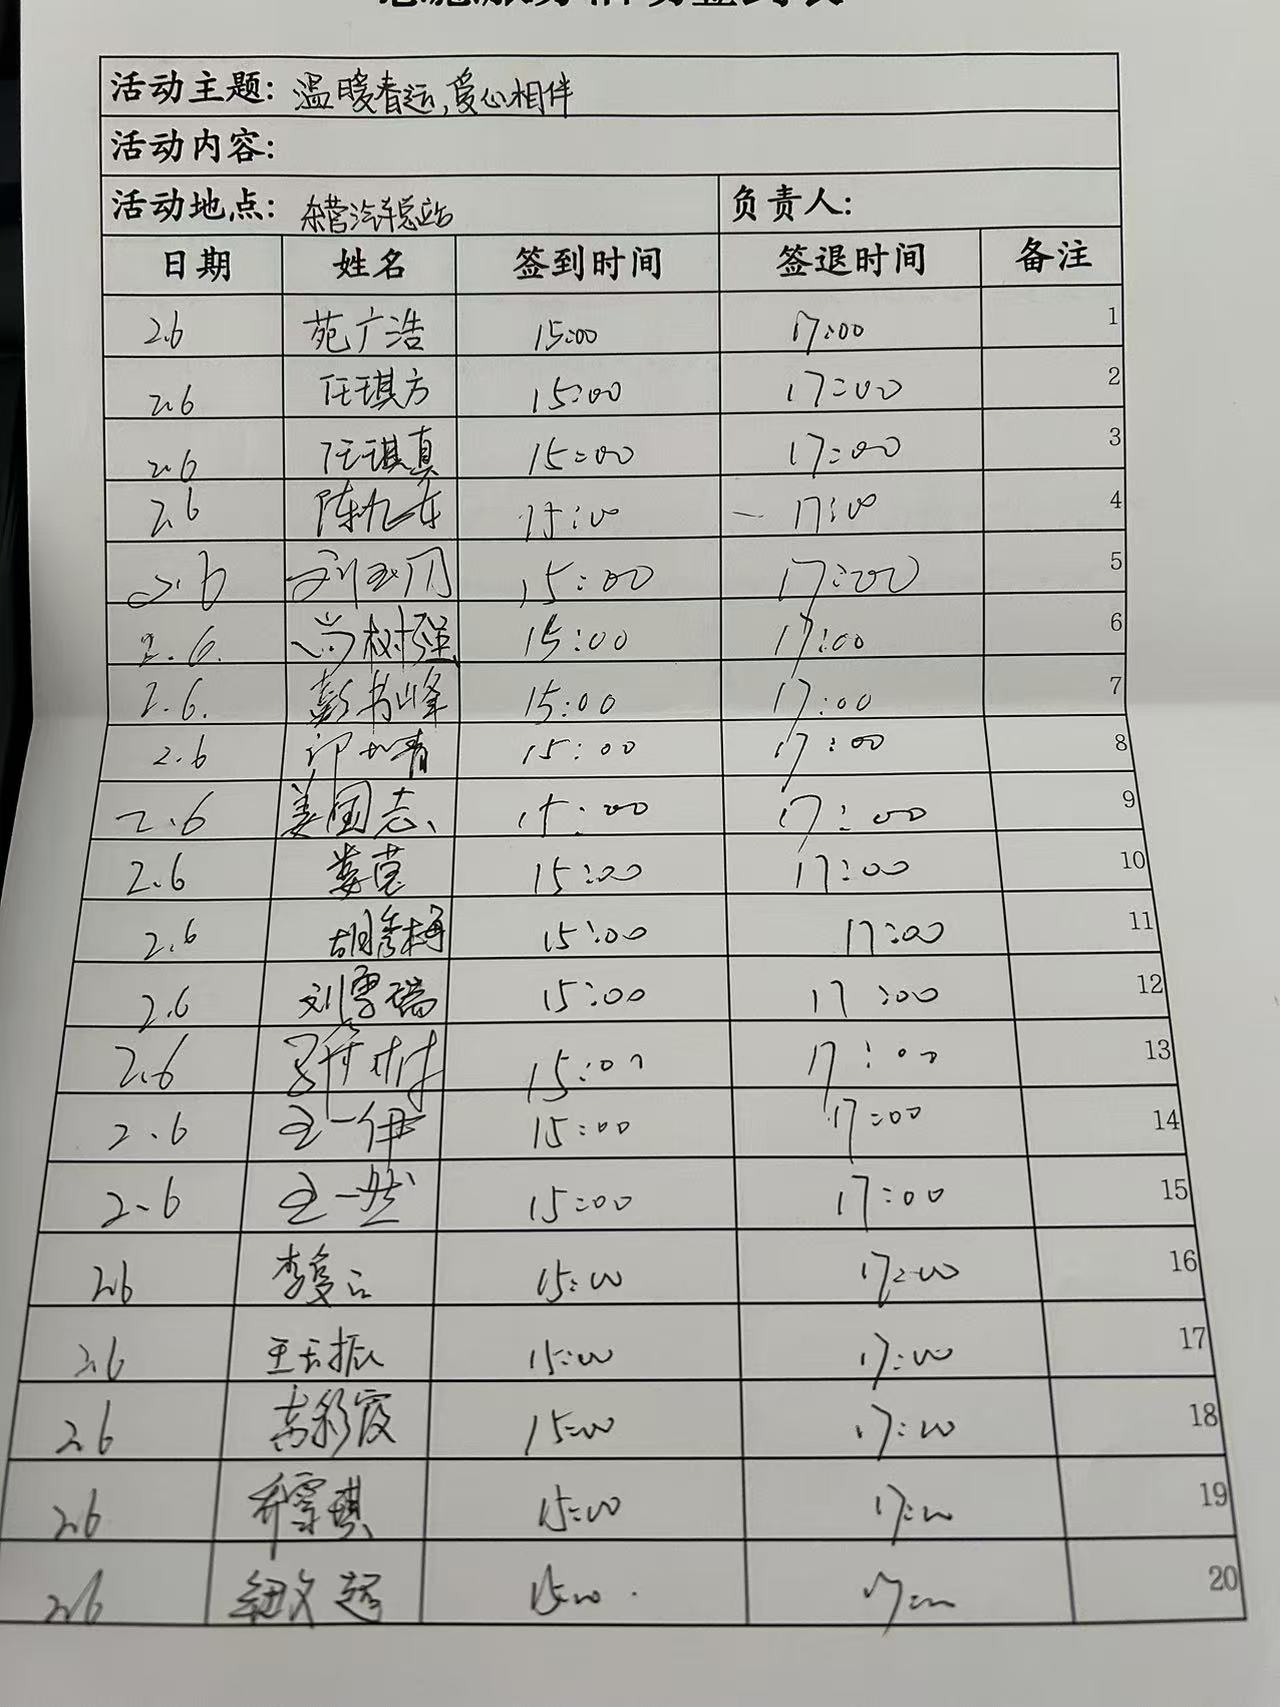 活动主题: 温暖春运,爱心相伴
活动内容:
活动地点: 东营汽车总站 负责人:
日期 姓名 签到时间 签退时间 备注
2.6 苑广浩 15:00 17:00 1
2.6 任琪方 15:00 17:00 2
2.6 任琪真 15:00 17:00 3
2.6 陈 15:00 17:00 4
2.6 刘玉 15:00 17:00 5
2.6. 尚树强 15:00 17:00 6
2.6. 彭书峰 15:00 17:00 7
2.6 15:00 17:00 8
2.6 姜国志 15:00 17:00 9
2.6 娄莹 15:00 17:00 10
2.6 胡秀梅 15:00 17:00 11
2.6 刘雪瑞 15:00 17:00 12
2.6 15:00 17:00 13
2.6 王一伊 15:00 17:00 14
2.6 王一然 15:00 17:00 15
2.6 李复 15:00 17:00 16
2.6 王振 15:00 17:00 17
2.6 高彩霞 15:00 17:00 18
2.6 乔雪琪 15:00 17:00 19
2.6 纽文超 15:00 17:00 20